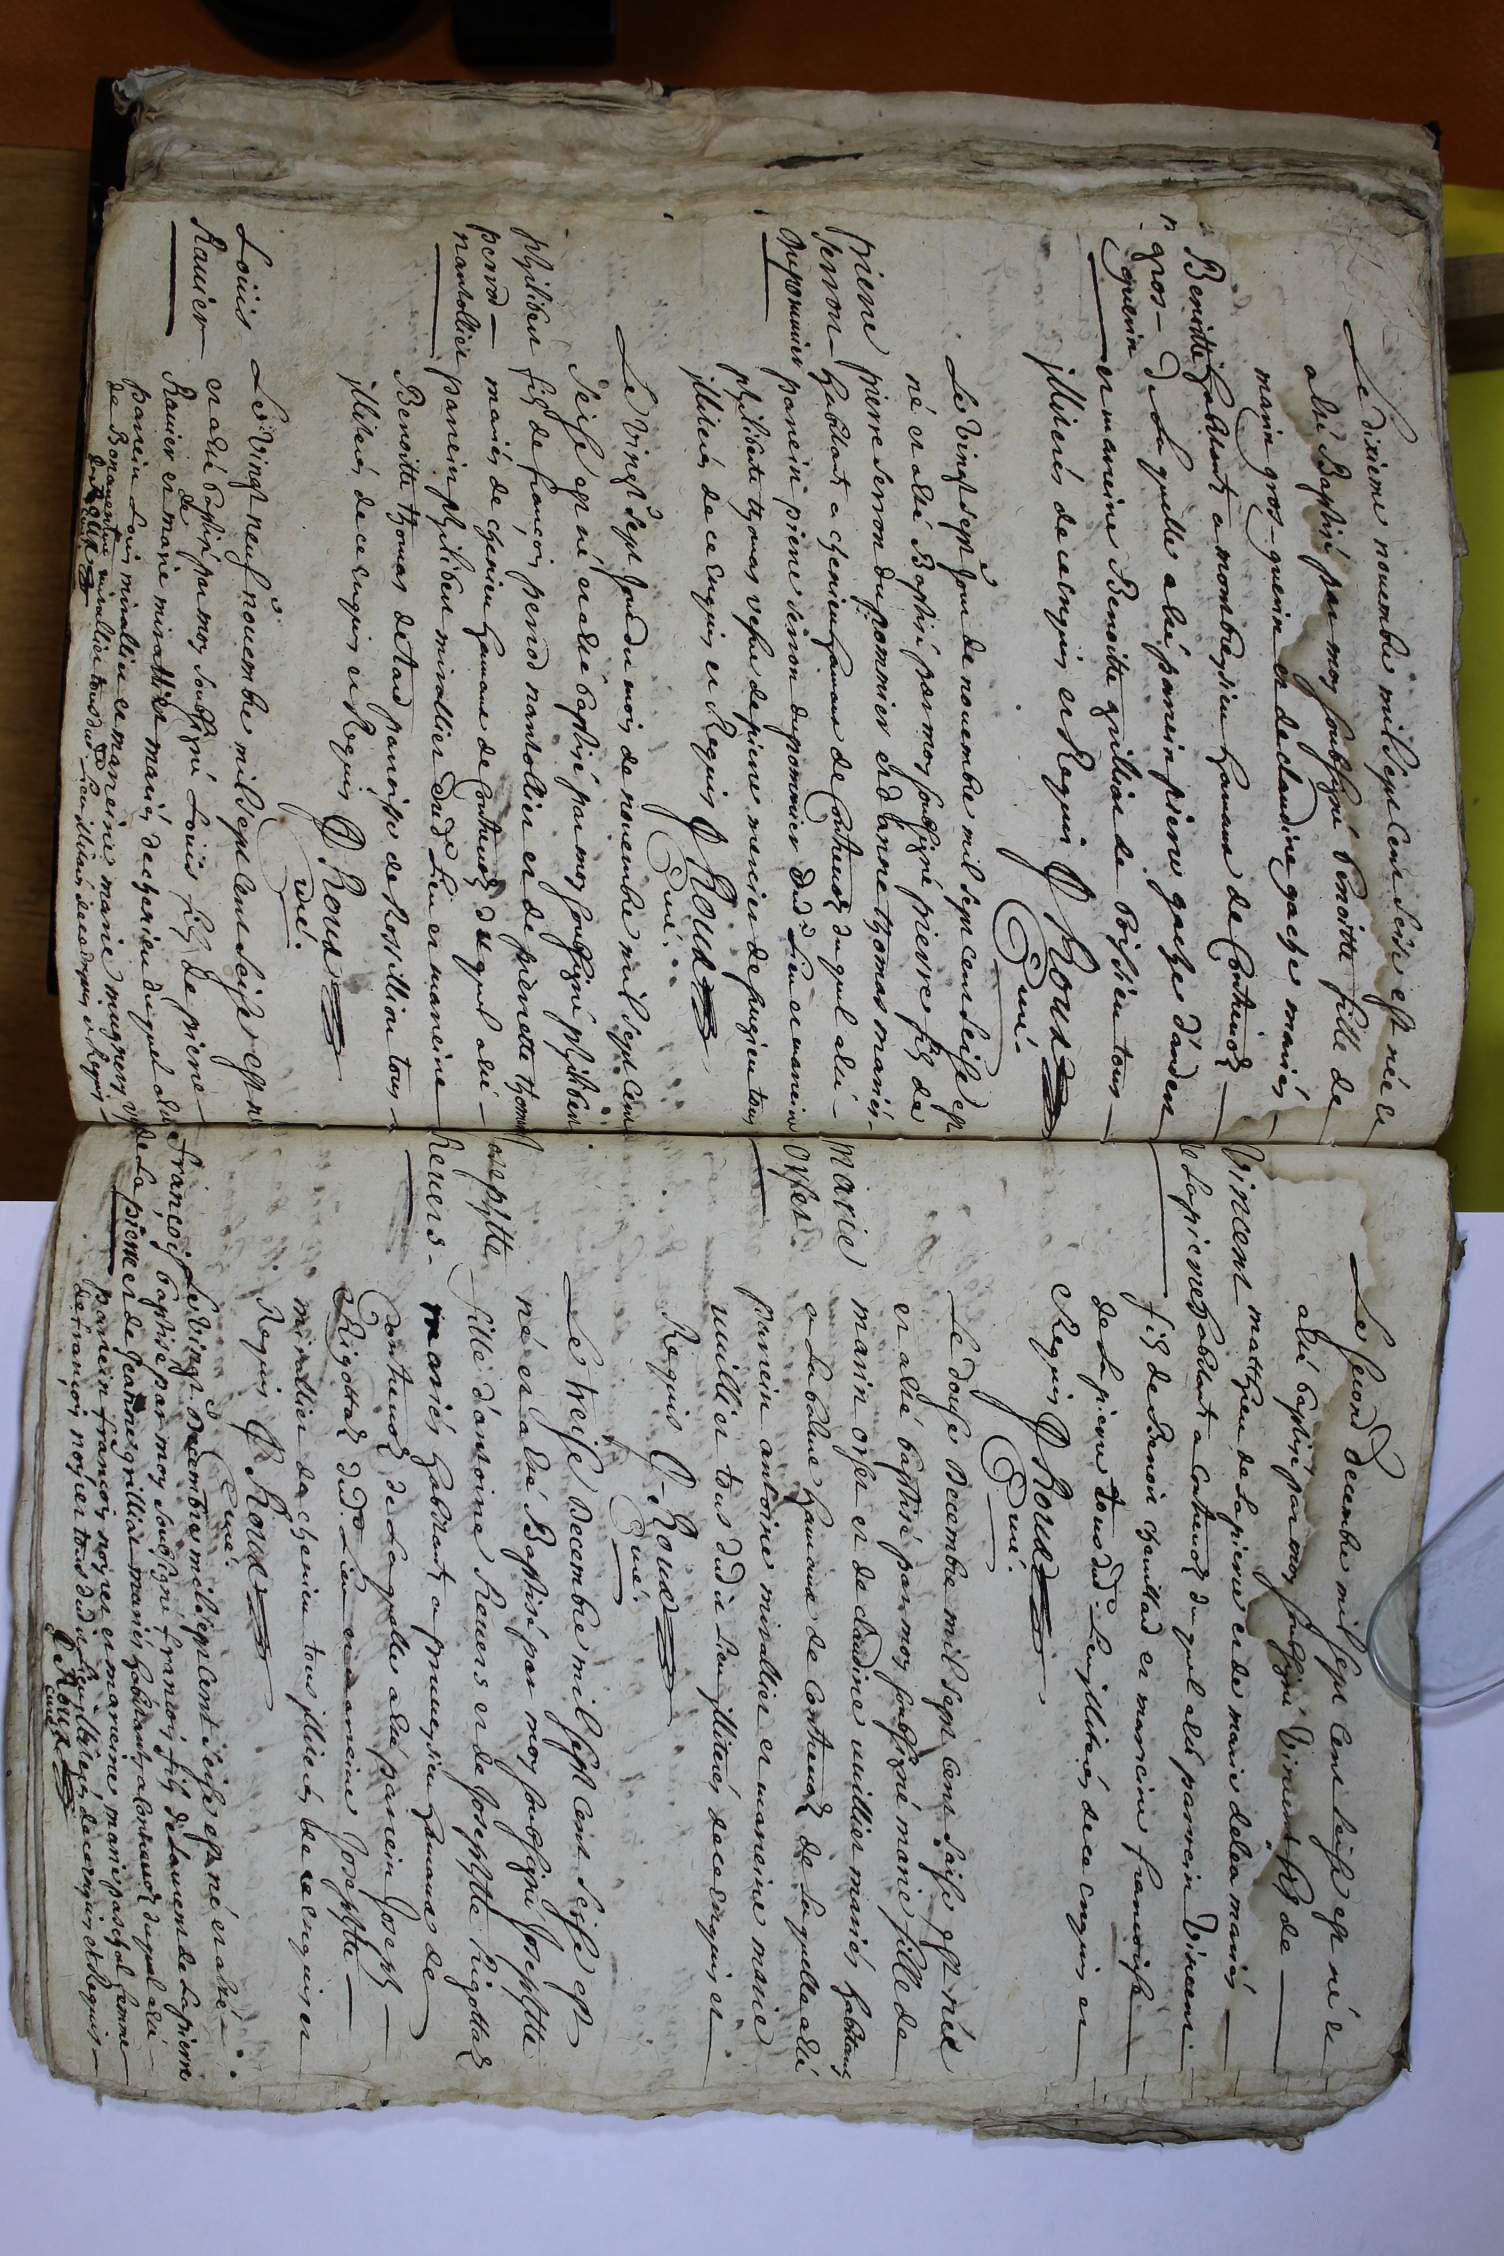 Le dixieme nouembre mil sept cent seise est née et
a été Baptisé par moy soubsigné benoitte fille de
marin gros-guerin et de claudine gache mariés
Benoitte habitants a monbreysieu hameau de Contreuoz
gros- de laquelle a été parrein pierre gache d'andert
guerin et marreine Benoitte grilliat de boissieu tous
illiterés de ce enquis et Requis J Roux
Curé.
Le vingt sept.e Jour de nouembre mil sept cent seise est
né et a été Baptisé par moy soubsigné pierre fils de
pierre pierre serron du pommier et d'anne thomas mariés
serron- habitants a cherieu hameau de Contreuoz duquel a été
du pommier parrein pierre serron du pommier dud.t Lieu et marreine
philiberte thomas vefue de pierre mercier de pugieu tous
illiterés de ce enquis et Requis J Roux
Curé.
Le vingt sept Jour du mois de nouembre mil sept cent
seise est né et a été baptisé par moy soubsigné philibert
philibert fils de françois perrod nantollier et de pierrette thomas
perrod- mariés de cherieu hameau de Contreuoz duquel a été
nantollier parrein philibert mirallier dud.t Lieu et marreine
Benoitte thomas de tard paroisse de Rossillion tous
illiterés de ce enquis et Requis J Roux
curé.
Louis Le vingt neuf.e nouembre mil sept cent seise est né
Rauier et a été baptisé par moy soubsigné Louis fils de pierre
Rauier et de marie mirallier mariés de cherieu duquel a été
parrein Louis mirallier et marreine marie mugnery
de Bonauenture mirallier tous dud. Lieu illiterés de ce enquis et Requis
J Roux
curé
Le second decembre mil sept cent seise est né et
a été baptisé par moy soubsigné Vincent fils de
Vincent matthieu de la pierre et de marie deléa mariés
de Lapierre habitants a Contreuoz duquel a été parrein Vincent
fils de Benoit chenillad et marreine francoise
de la pierre tous dud.t Lieu illiterés de ce enquis et
Requis J Roux
Curé.
Le douse decembre mil sept cent seise est née
et a été baptisé par moy soubsigné marie fille de
Marie marin orset et de claudine uuillier mariés habitants
orset. a la balme hameau de Contreuoz de laquelle a été
parrein antoine mirallier et marreine marie
uuillier tous dud.it Lieu illiterés de ce enquis et
Requis J Roux
Curé.
Le treise decembre mil sept cent seise est
né et a été Baptisé par moy soubsigné Josephte
Josephte fille d'antoine Reuers et de Josephte Rigottaz
Reuers- mariés habitants a preueysieu hameau de
Contreuoz de laquelle a été parrein Joseph
Rigottaz dud.t Lieu et marreine Josephte
mirallier de cherieu tous illiterés de ce enquis et
Requis J Roux
Curé.
françois Le vingt.e decembre mil sept cent seise est né et a été
baptisé par moy soubsigné françois fils de Laurent de Lapierre
de La pierre et de Jeanne grilliat mariés habitants a Contreuoz duquel a été
parrein françois noyer et marreine marie paschal femme
de françois noyer tous dud.it Lieu illiterés de ce enquis et Requis
J Roux
curé